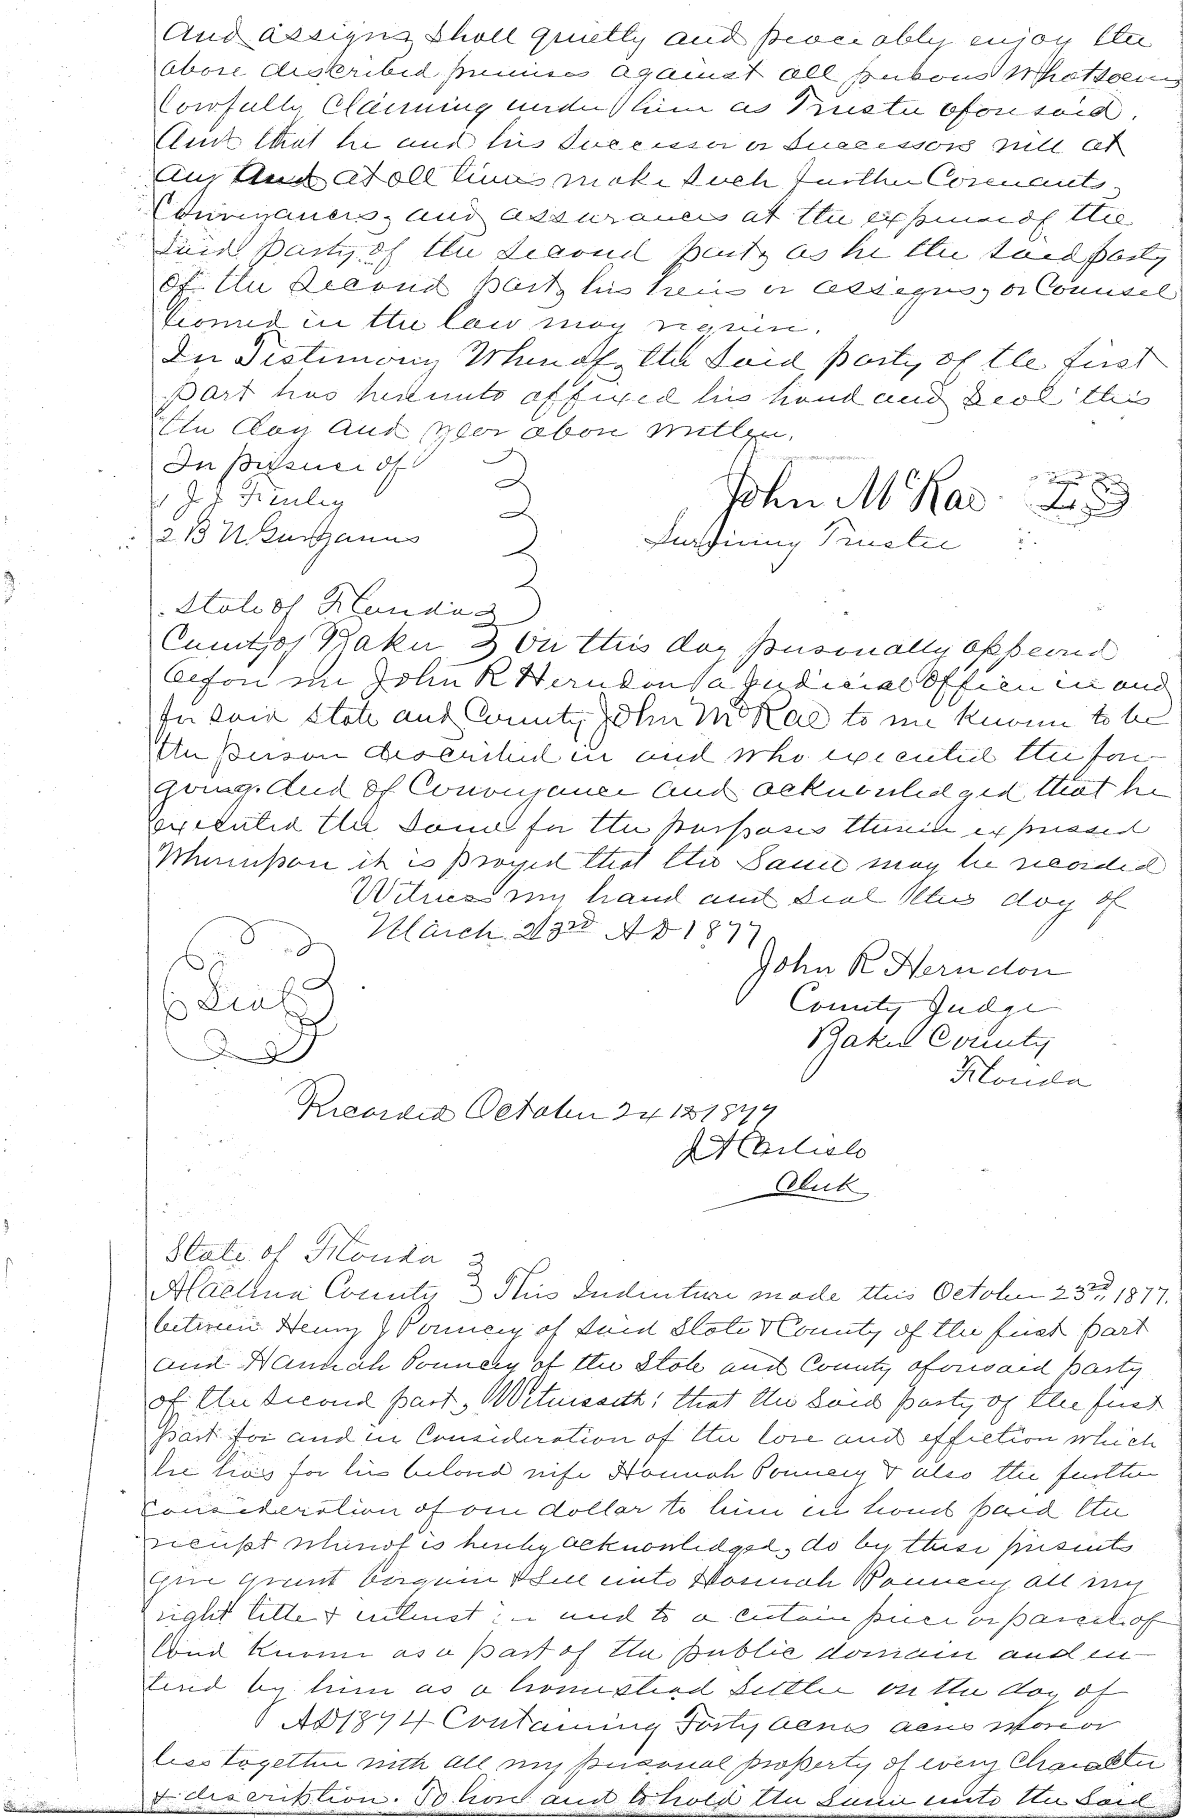 And assigns shall quietly and peaceably enjoy the
above described premises against all persons whatsoever
lawfully claiming under him as Trustee aforesaid.
And that he and his Successor or Successors will at
any and at all times make such further Covenants,
Conveyances, and assurances at the expense of the
said party of the second part, as he the said party
of the second part, his heirs or assigns, or Counsel
learned in the law may require.
In Testimony Whereof, the said party of the first
part has hereunto affixed his hand and seal this
the day and year above written.
In presence of
1 J J Finley
2 B N Gurganus
John McRae L S
Surviving Trustee
State of Florida
County of Baker On this day personally appeared
before me John R Herndon a Judicial Officer in and
for said State and County John McRae to me known to be
the person described in and who executed the fore-
going deed of Conveyance and acknowledged that he
executed the same for the purposes therein expressed
Whereupon it is prayed that the same may be recorded
Witness my hand and seal this day of
March 23rd AD 1877
Seal
John R Herndon
County Judge
Baker County
Florida
Recorded October 24 1877
J H Carlisle
Clerk
State of Florida
Alachua County This Indenture made this October 23rd, 1877.
between Henry J Pouncey of said State & County of the first part
and Hannah Pouncey of the State and County aforesaid party
of the second part, Witnesseth: that the said party of the first
part for and in Consideration of the love and affection which
he has for his beloved wife Hannah Pouncey & also the further
consideration of one dollar to him in hand paid the
receipt whereof is hereby acknowledged, do by these presents
give grant bargain & sell unto Hannah Pouncey all my
right title & interest in and to a certain piece or parcel of
land known as a part of the public domain and en-
tered by him as a homestead settler on the day of
AD 1874 Containing Forty acres acres more or
less together with all my personal property of every Character
& description. To have and to hold the same unto the said